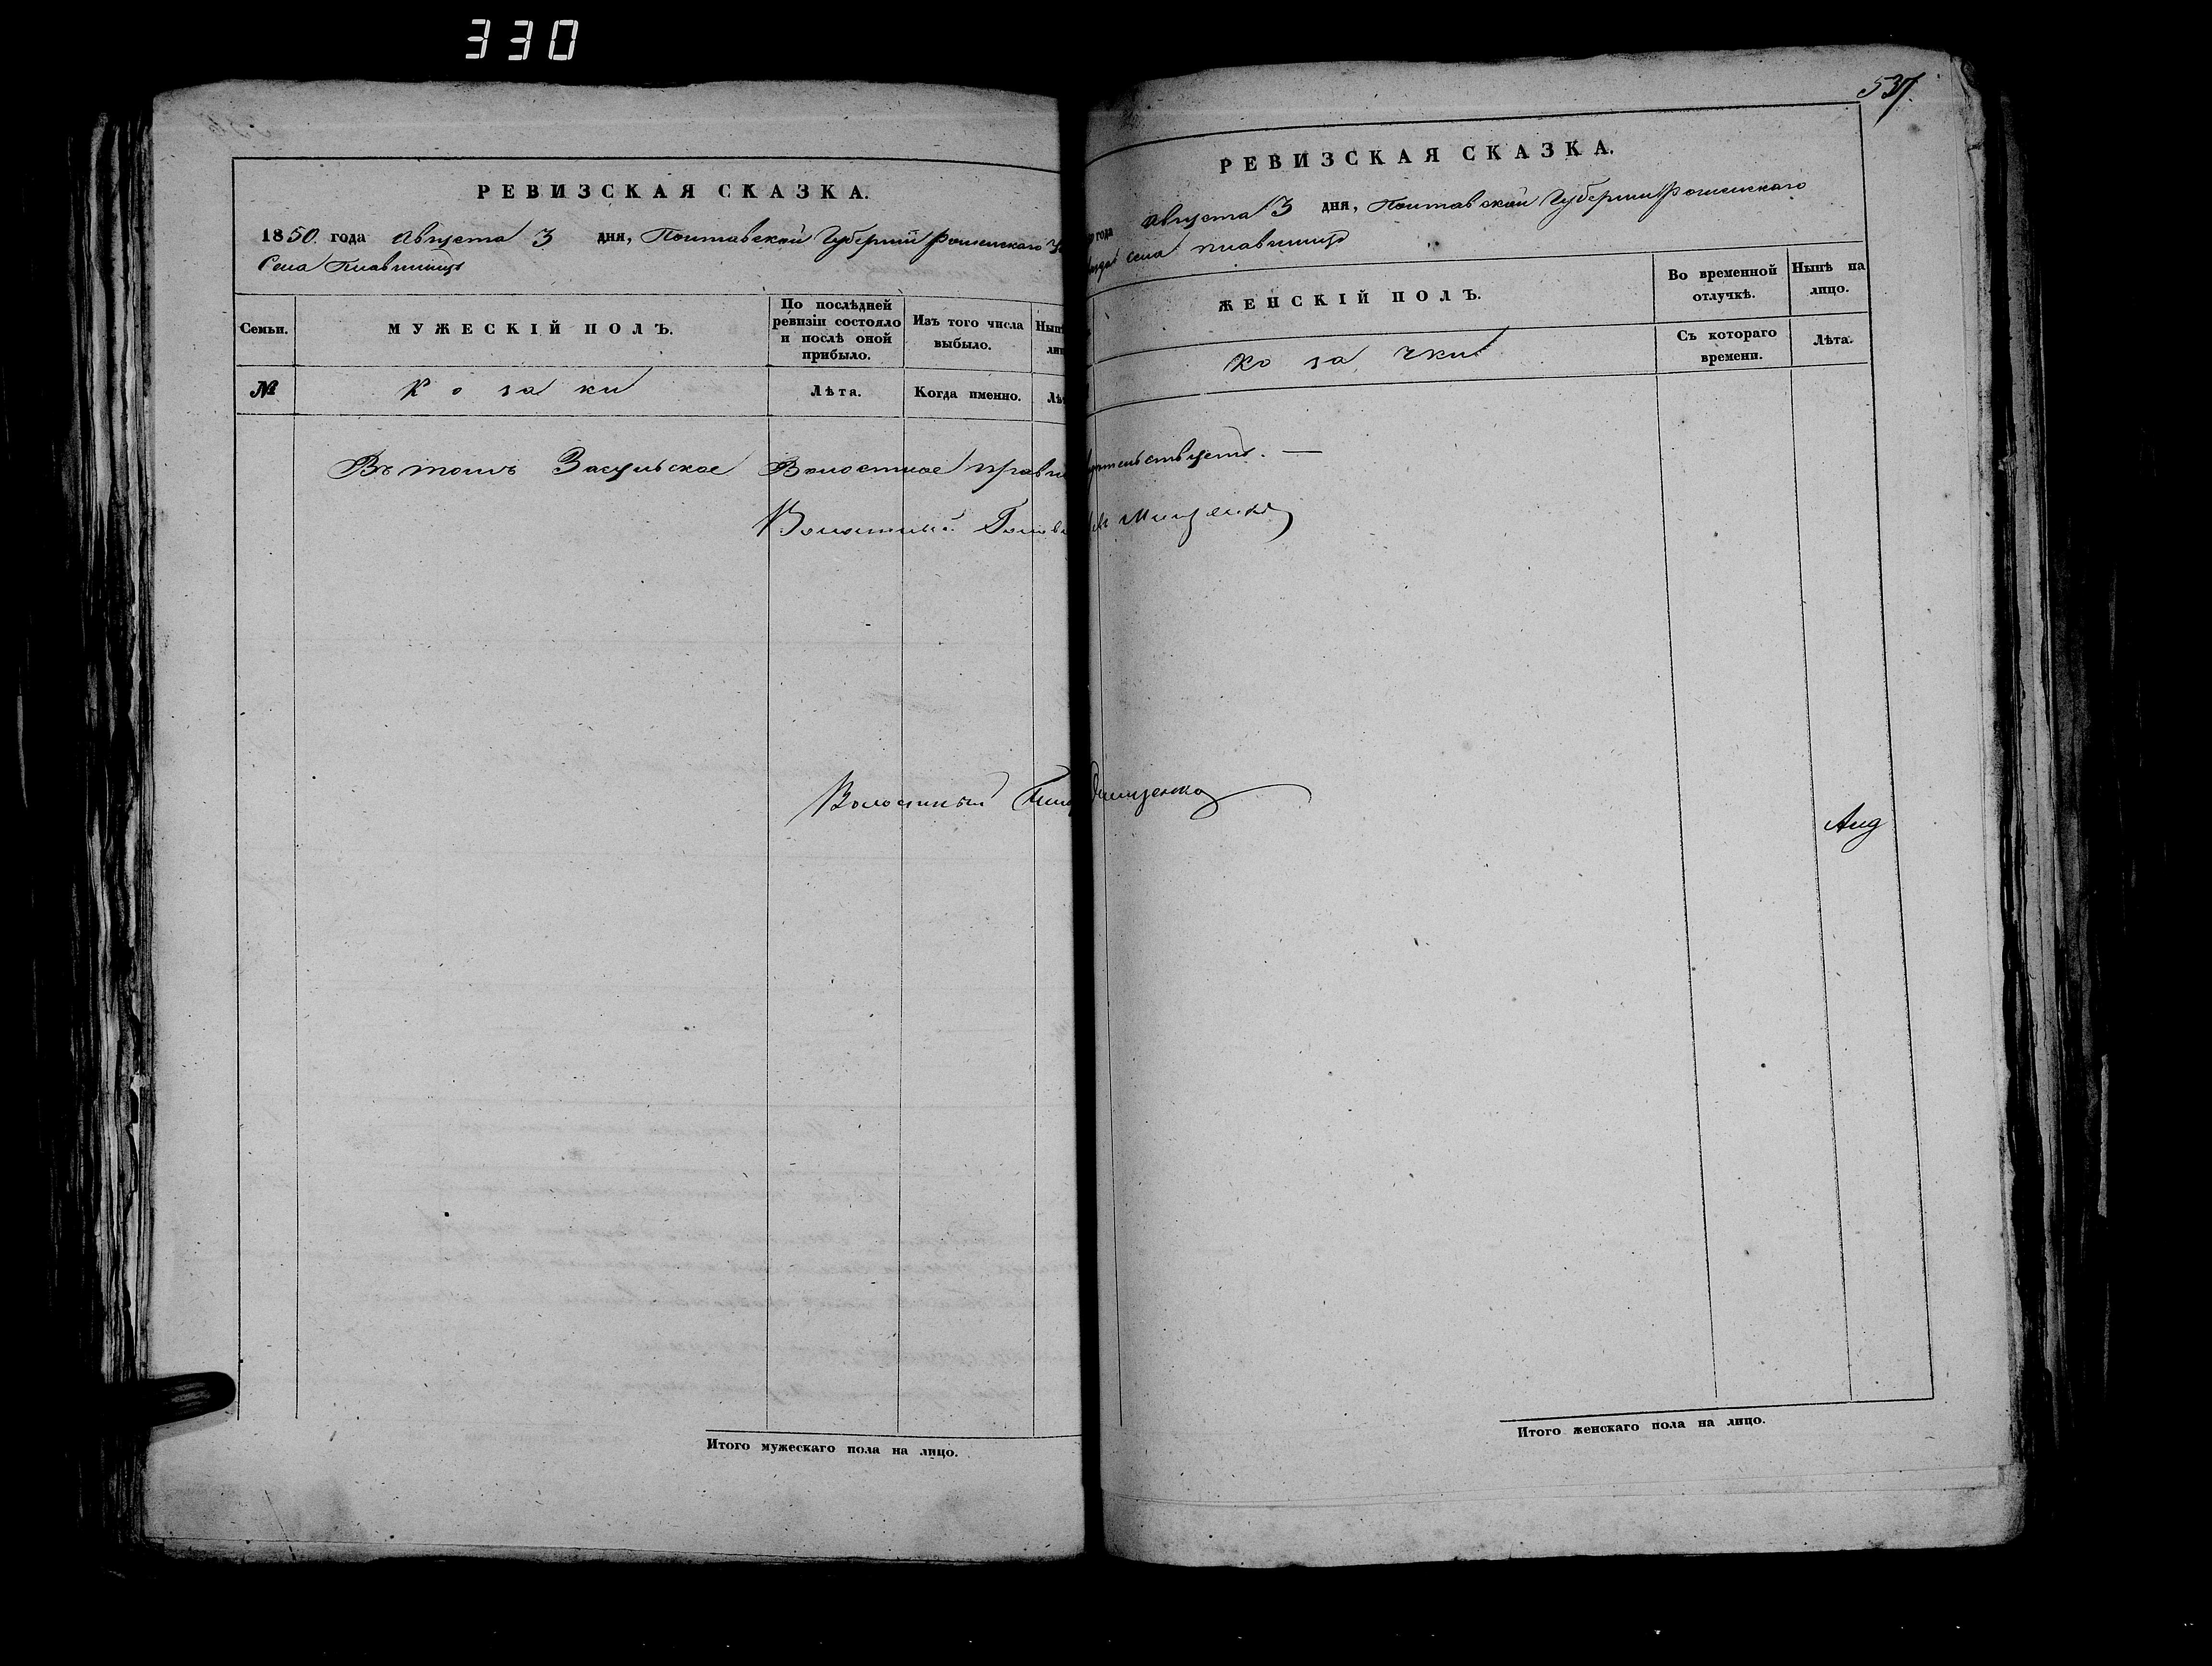 330
РЕВИЗСКАЯ СКАЗКА.
1850. года Августа 3 дня, Полтавской Губернии Роменскаго
Села Плавинищъ
Семьи.
МУЖЕСКІЙ ПОЛЪ.
По послѣдней ревизіи состояло и послѣ оной прибыло.
Изъ того числа выбыло.
№
Козаки
Лѣта.
Когда именно.
Въ томъ Засульское Волостное правле
Волостный Голова
Волостный
Итого мужескаго пола на лицо.
537.
РЕВИЗСКАЯ СКАЗКА.
года Августа 3 дня, Полтавской Губерніи Роменскаго
села Плавинищъ
ЖЕНСКІЙ ПОЛЪ.
Во временной отлучкѣ.
Нынѣ на лицо.
Козачки
Съ котораго времени.
Лѣта.
Итого женскаго пола на лицо.